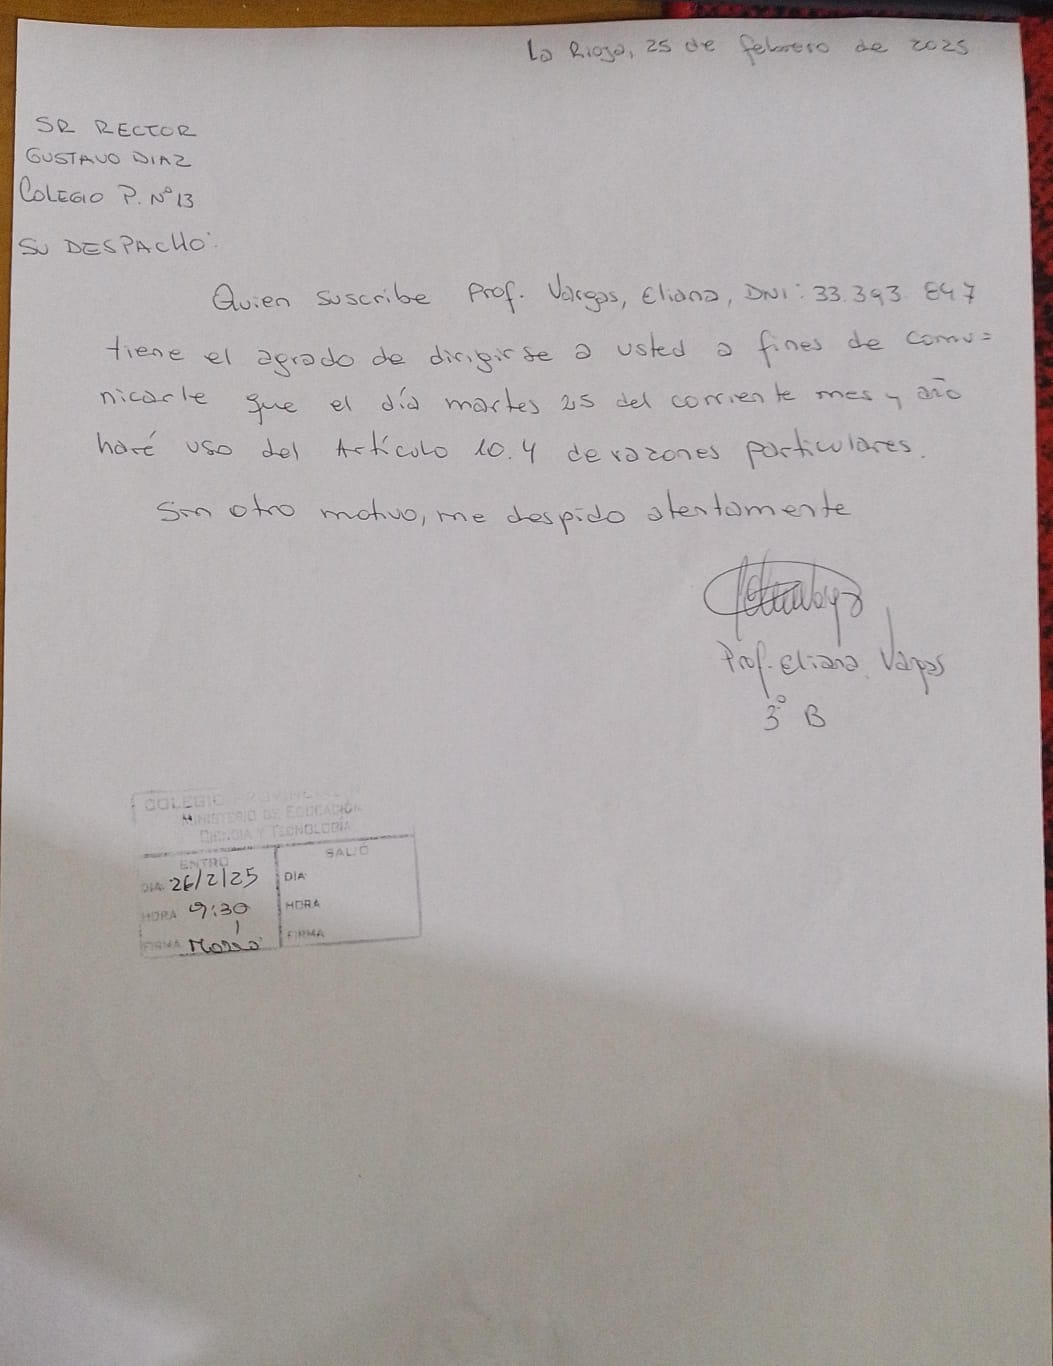 La Rioja, 25 de febrero de 2025
SR RECTOR
GUSTAVO DIAZ
COLEGIO P. Nº 13
SU DESPACHO:
Quien suscribe Prof. Vargas, Eliana, DNI: 33.393.847
tiene el agrado de dirigirse a usted a fines de comu=
nicarle que el día martes 25 del corriente mes y año
haré uso del Artículo 10.4 de razones particulares.
Sin otro motivo, me despido atentamente
Prof. Eliana Vargas
3º B
COLEGIO PROVINCIAL
MINISTERIO DE EDUCACIÓN
CIENCIA Y TECNOLOGÍA
ENTRO SALIÓ
DIA 26/2/25 DIA
HORA 9:30 HORA
FIRMA FIRMA